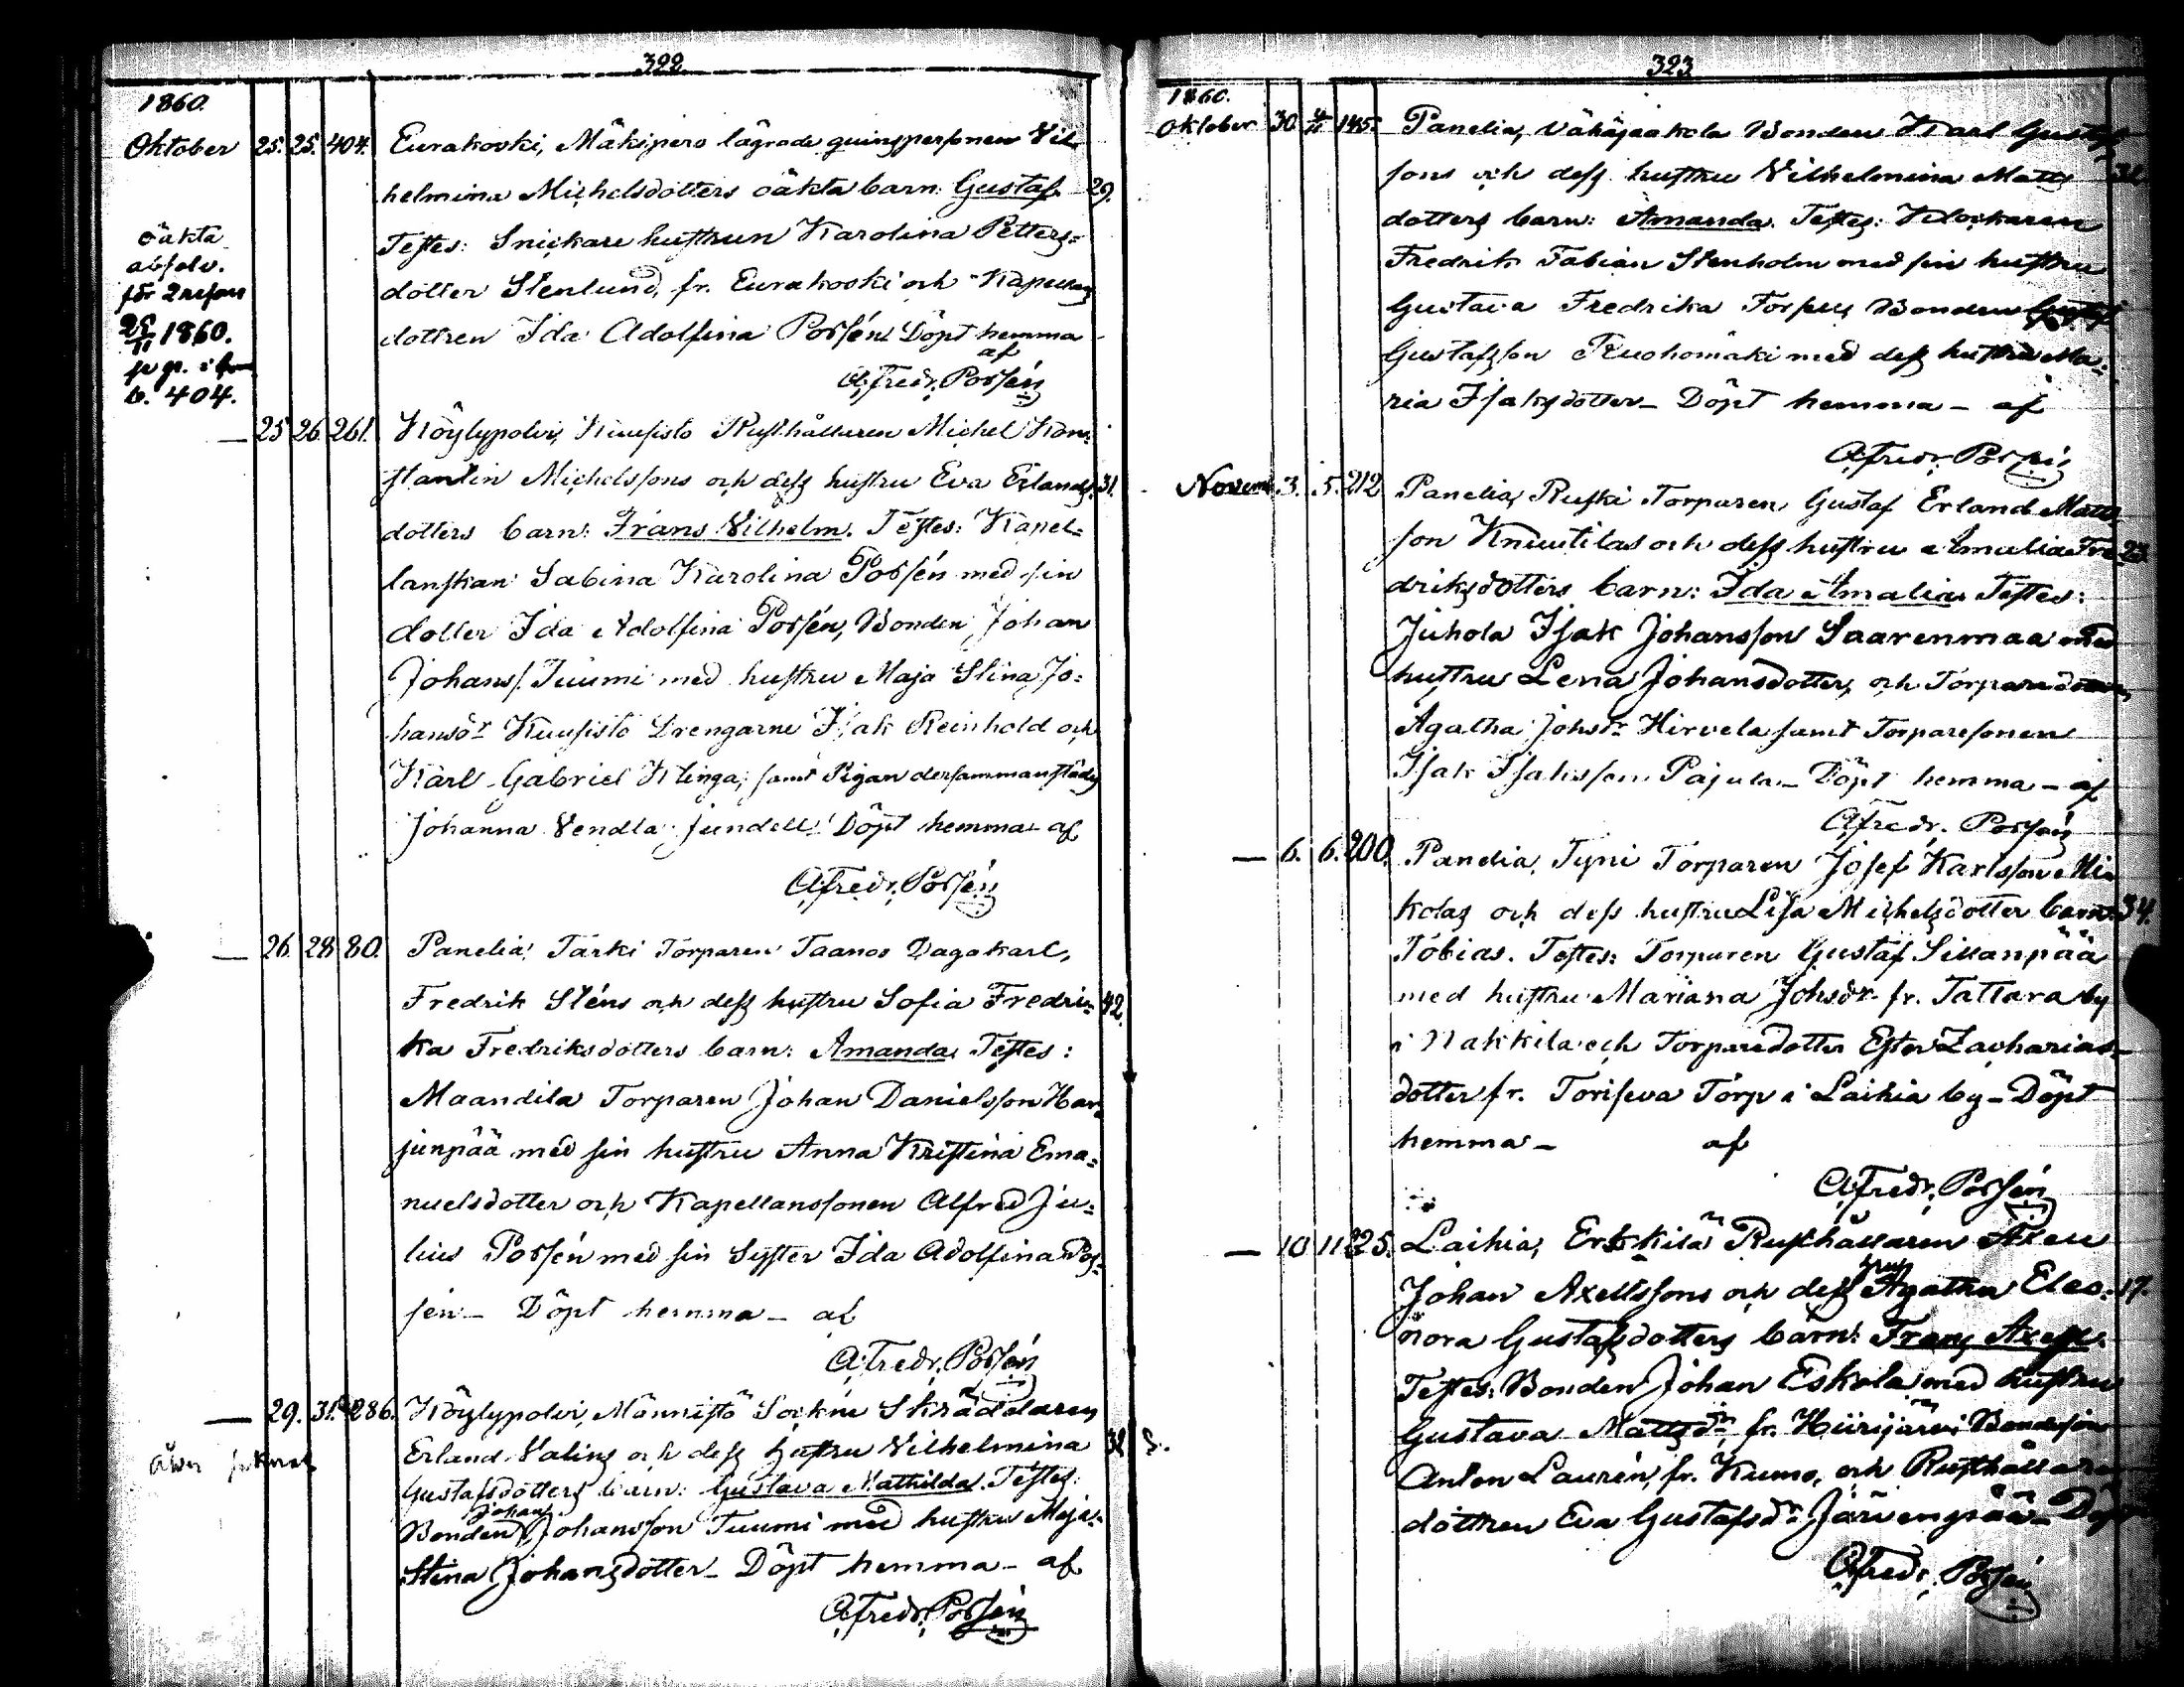 322
1860.
Oktober 25. 25. 404. Eurakoski, Mäkipero lägrade quinspersonen Vil-
helmina Michelsdotters oäkta barn: Gustaf 29.
Testes: Snickare hustrun Karolina Petters=
dotter Stenlund, fr. Eurakoski och Kapellans
dottren Ida Adolfina Possén Döpt hemma
af
A. Fredr. Possén
oäkta
absolv.
för 2 resan
25/11 1860.
b. 404.
— 25 26. 261. Köylypolvi, Kuusisto Rusthållaren Michel Kon-
stantin Michelssons och dess hustru Eva Erlands 31.
dotters barn: Frans Vilhelm. Testes: Kapel=
lanskan Sabina Karolina Possén med sin
dotter Ida Adolfina Possén, Bonden Johan
Johanss. Tuumi med hustru Maja Stina Jo=
hansdr Kuusisto Drengarne Isak Reinhold och
Karl Gabriel Klinga, samt Pigan dersammanstädes
Johanna Vendla Jundell Döpt hemma af
A. Fredr. Possén
— 26. 28 80. Panelia, Tarki Torparen Taanos Dagakarl,
Fredrik Sténs och dess hustru Sofia Fredri= 42.
ka Fredriksdotters barn: Amanda. Testes:
Maandila Torparen Johan Danielsson Har=
junpää med sin hustru Anna Kristina Ema=
nuelsdotter och Kapellanssonen Alfred Ju=
lius Possén med sin Syster Ida Adolfina Pos=
sén — Döpt hemma — af
A. Fredr. Possén
— 29. 31. 286. Köylypolvi, Männistö Sockne Skräddaren
Erland Valins och dess hustru Vilhelmina 38
Gustafsdotters barn: Gustava Mathilda. Testes:
Johan
Bonden Johansson Tuumi med hustru Maja
Stina Johansdotter — Döpt hemma — af
A. Fredr. Possén
323
1860.
Oktober 30. 4/11 145. Panelia, Vähäjaakola Bonden Karl Gustaf
sons och dess hustru Vilhelmina Matts
dotters barn: Amanda. Testes: Klockaren
Fredrik Fabian Stenholm med sin hustru
Gustava Fredrika Forsius Bonden
Gustafsson Ruohomäki med dess hustru Ma=
ria Isaksdotter — Döpt hemma — af
A. Fredr. Possén
Novem. 3. 5. 212 Panelia, Ruski Torparen, Gustaf Erland Matts
son Knuutilas och dess hustru Amalia Fre 23
driksdotters barn: Ida Amalia Testes:
Juhola Isak Johansson Saarenmaa med
hustru Lena Johansdotter, och Torpare dottren
Agatha Johsdr Hirvela samt Torparesonen
Isak Isaksson Pajula — Döpt hemma — af
A. Fredr. Possén
— 6. 6. 200. Panelia, Tyni Torparen Josef Karlsson Mi
kolas och dess hustru Lisa Michelsdotter barn: 34.
Tobias. Testes: Torparen Gustaf Sillanpää
med hustru Mariana Johsdr fr. Tattara by
i Nakkila och Torparedotter Ester Zacharias-
dotter fr. Toriseva Torp i Laihia by — Döpt
hemma — af
A. Fredr. Possén
— 10 11 225. Laihia, Erkkilä Rusthållaren Axell
hustru
Johan Axellssons och dess Agatha Eleo= 17.
nora Gustafsdotters barn: Frans Axell.
Testes: Bonden Johan Eskola med hustru
Gustava Mattsdr, fr. Hiirijärvi Bondeson
Anton Laurén, fr. Kumo, och Rusthållare
dottren Eva Gustafsdr Järvenpää — Döpt
A. Fredr. Possén